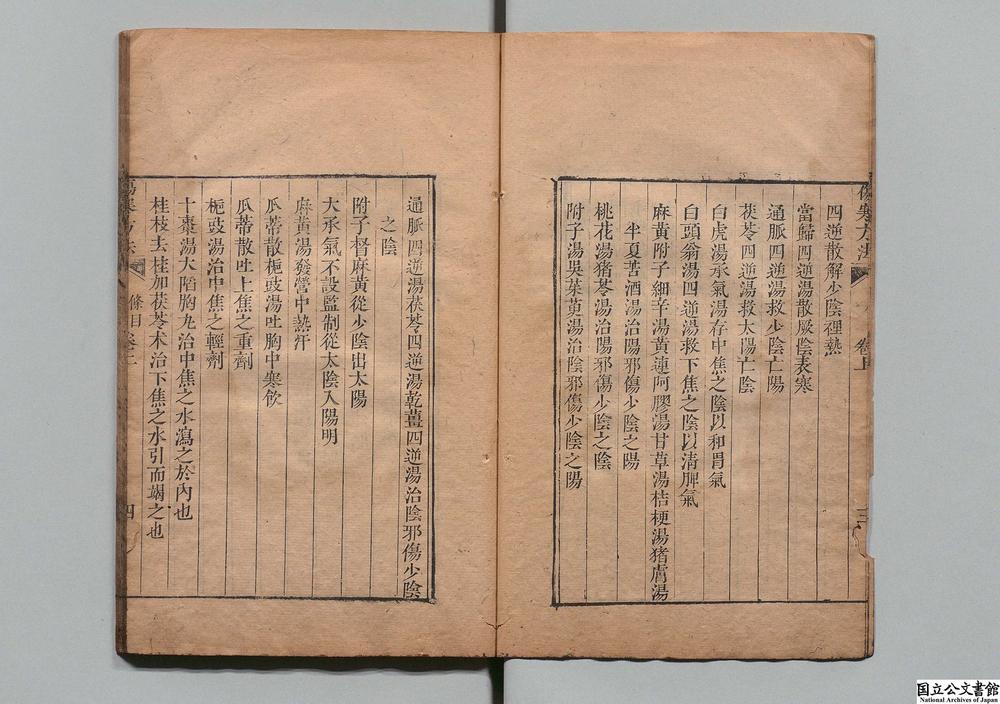 四逆散解少陰裡熱
當歸四逆湯散厥陰表寒
通脈四逆湯救少陰亡陽
茯苓四逆湯救太陽亡陰
白虎湯承氣湯存中焦之陰以和胃氣
白頭翁湯四逆湯救下焦之陰以清脾氣
麻黃附子細辛湯黃連阿膠湯甘草湯桔梗湯猪膚湯
半夏苦酒湯治陽邪傷少陰之陽
桃花湯猪苓湯治陽邪傷少陰之陰
附子湯吳茱萸湯治陰邪傷少陰之陽
通脈四逆湯茯苓四逆湯乾薑四逆湯治陰邪傷少陰
之陰
附子督麻黃從少陰出太陽
大承氣不設監制從太陰入陽明
麻黃湯發營中熱汗
瓜蒂散梔豉湯吐胸中寒飲
瓜蒂散吐上焦之重劑
梔豉湯治中焦之輕劑
十棗湯大陷胸丸治中焦之水瀉之於內也
桂枝去桂加茯苓朮治下焦之水引而竭之也
條目
四
国立公文書館
National Archives of Japan